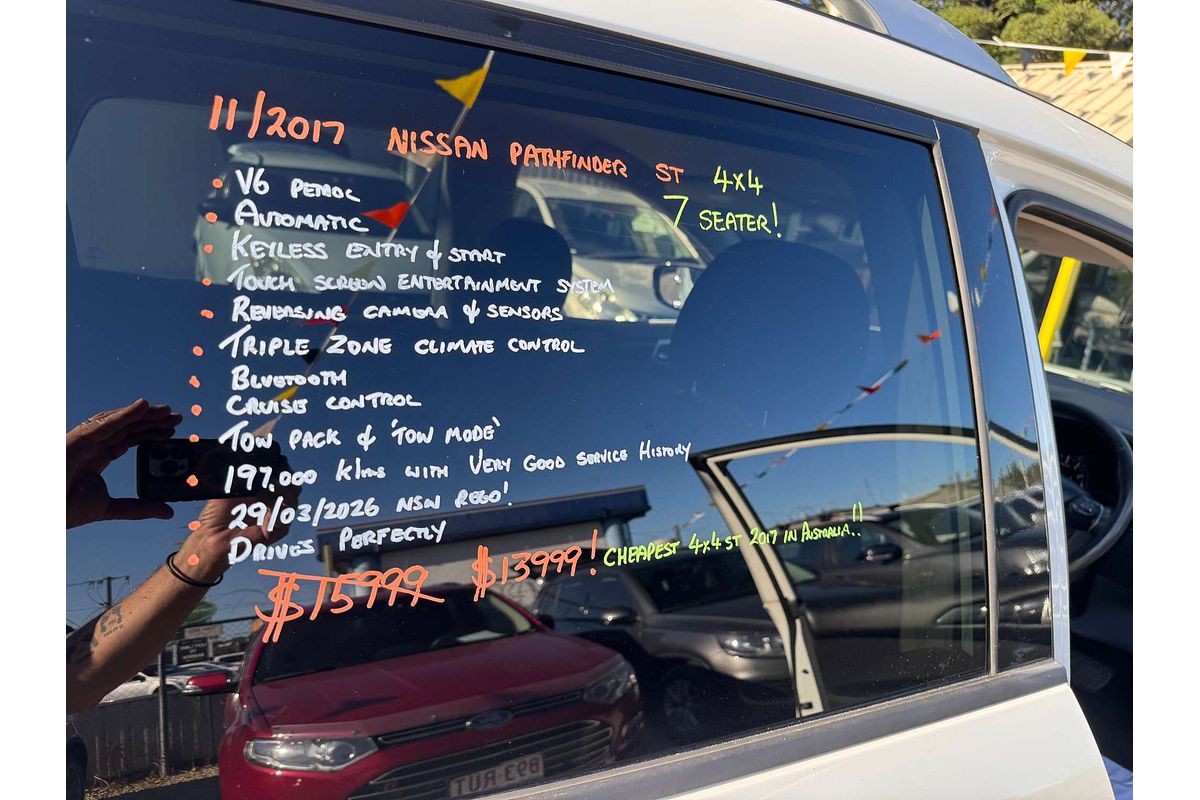 11/2017 NISSAN PATHFINDER ST 4x4
7 SEATER!
• V6 PEMOL
• AUTOMATIC
• KEYLESS ENTRY & START
• TOUCH SCREEN ENTERTAINMENT SYSTEM
• REVERSING CAMERA & SENSORS
• TRIPLE ZONE CLIMATE CONTROL
• BLUETOOTH
• CRUISE CONTROL
• TOW PACK & 'TOW MODE'
• 197,000 klms WITH VERY GOOD SERVICE HISTORY
• 29/03/2026 NSW REGO!
• DRIVES PERFECTLY
$15999 $13999! CHEAPEST 4x4 ST 2017 IN AUSTRALIA!!